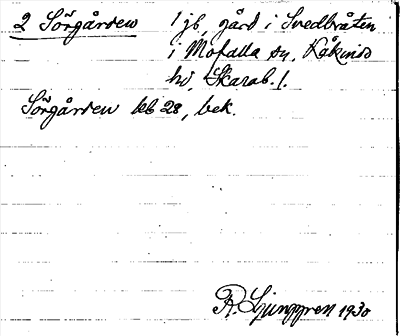 2 Sörgården 1 jb, gård i Svedbråten
i Mofalla sn, Kåkinds
hd, Skarab. l.
Sörgården kb 28, bek.
R. Ljunggren 1930